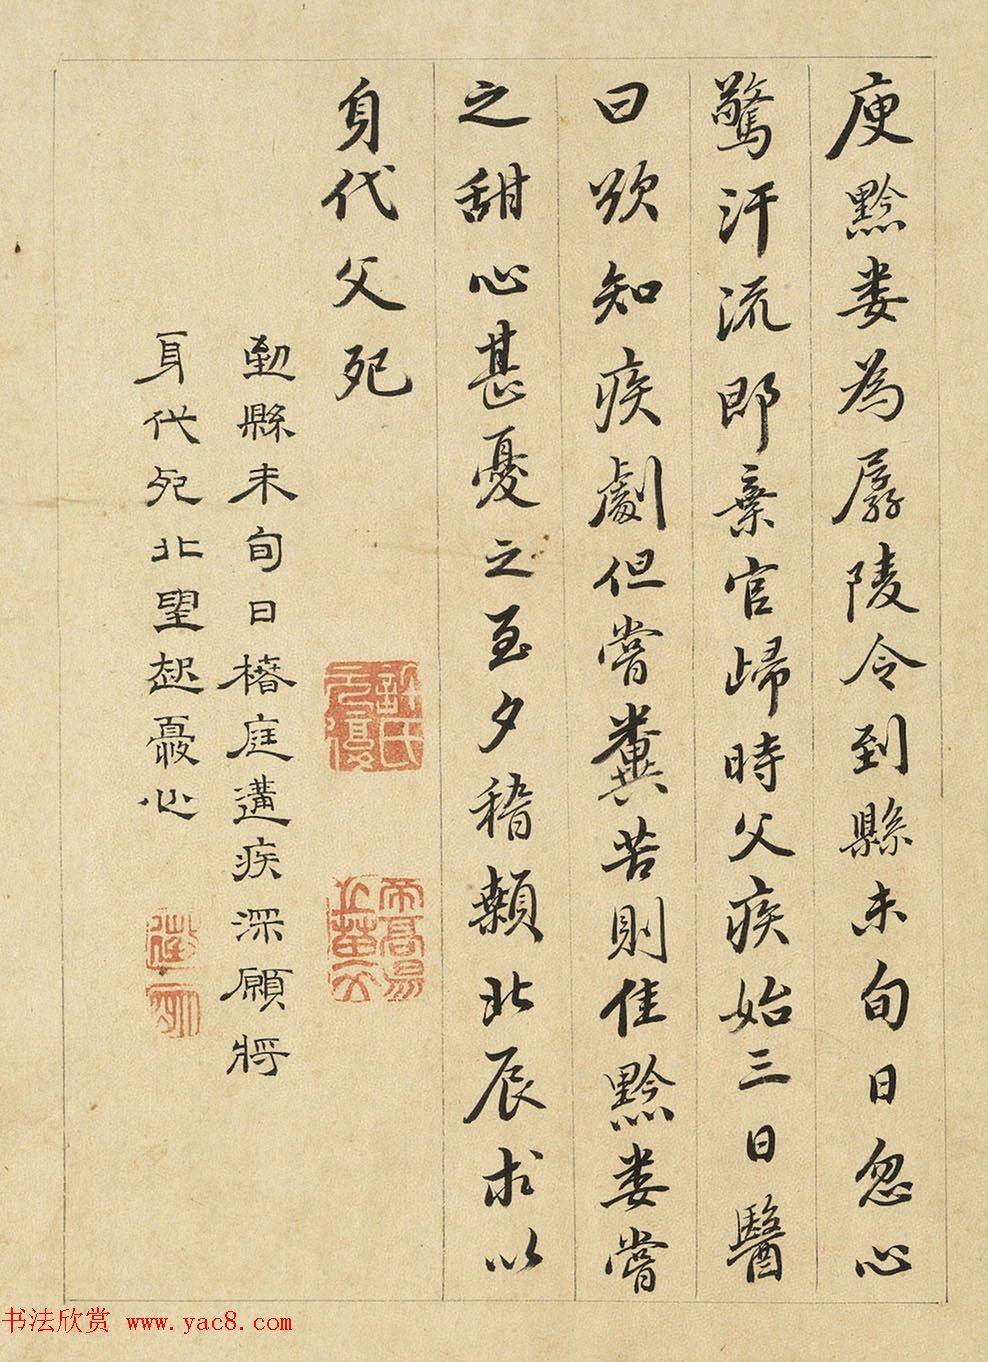 庾黔婁為孱陵令到縣未旬日忽心
驚汗流即棄官歸時父疾始三日醫
曰欲知疾劇但嘗糞苦則佳黔婁嘗
之甜心甚憂之至夕稽顙北辰求以
身代父死
到縣未旬日椿庭遘疾深願將
身代死北望起憂心
許氏元復
书法欣赏 www.yac8.com